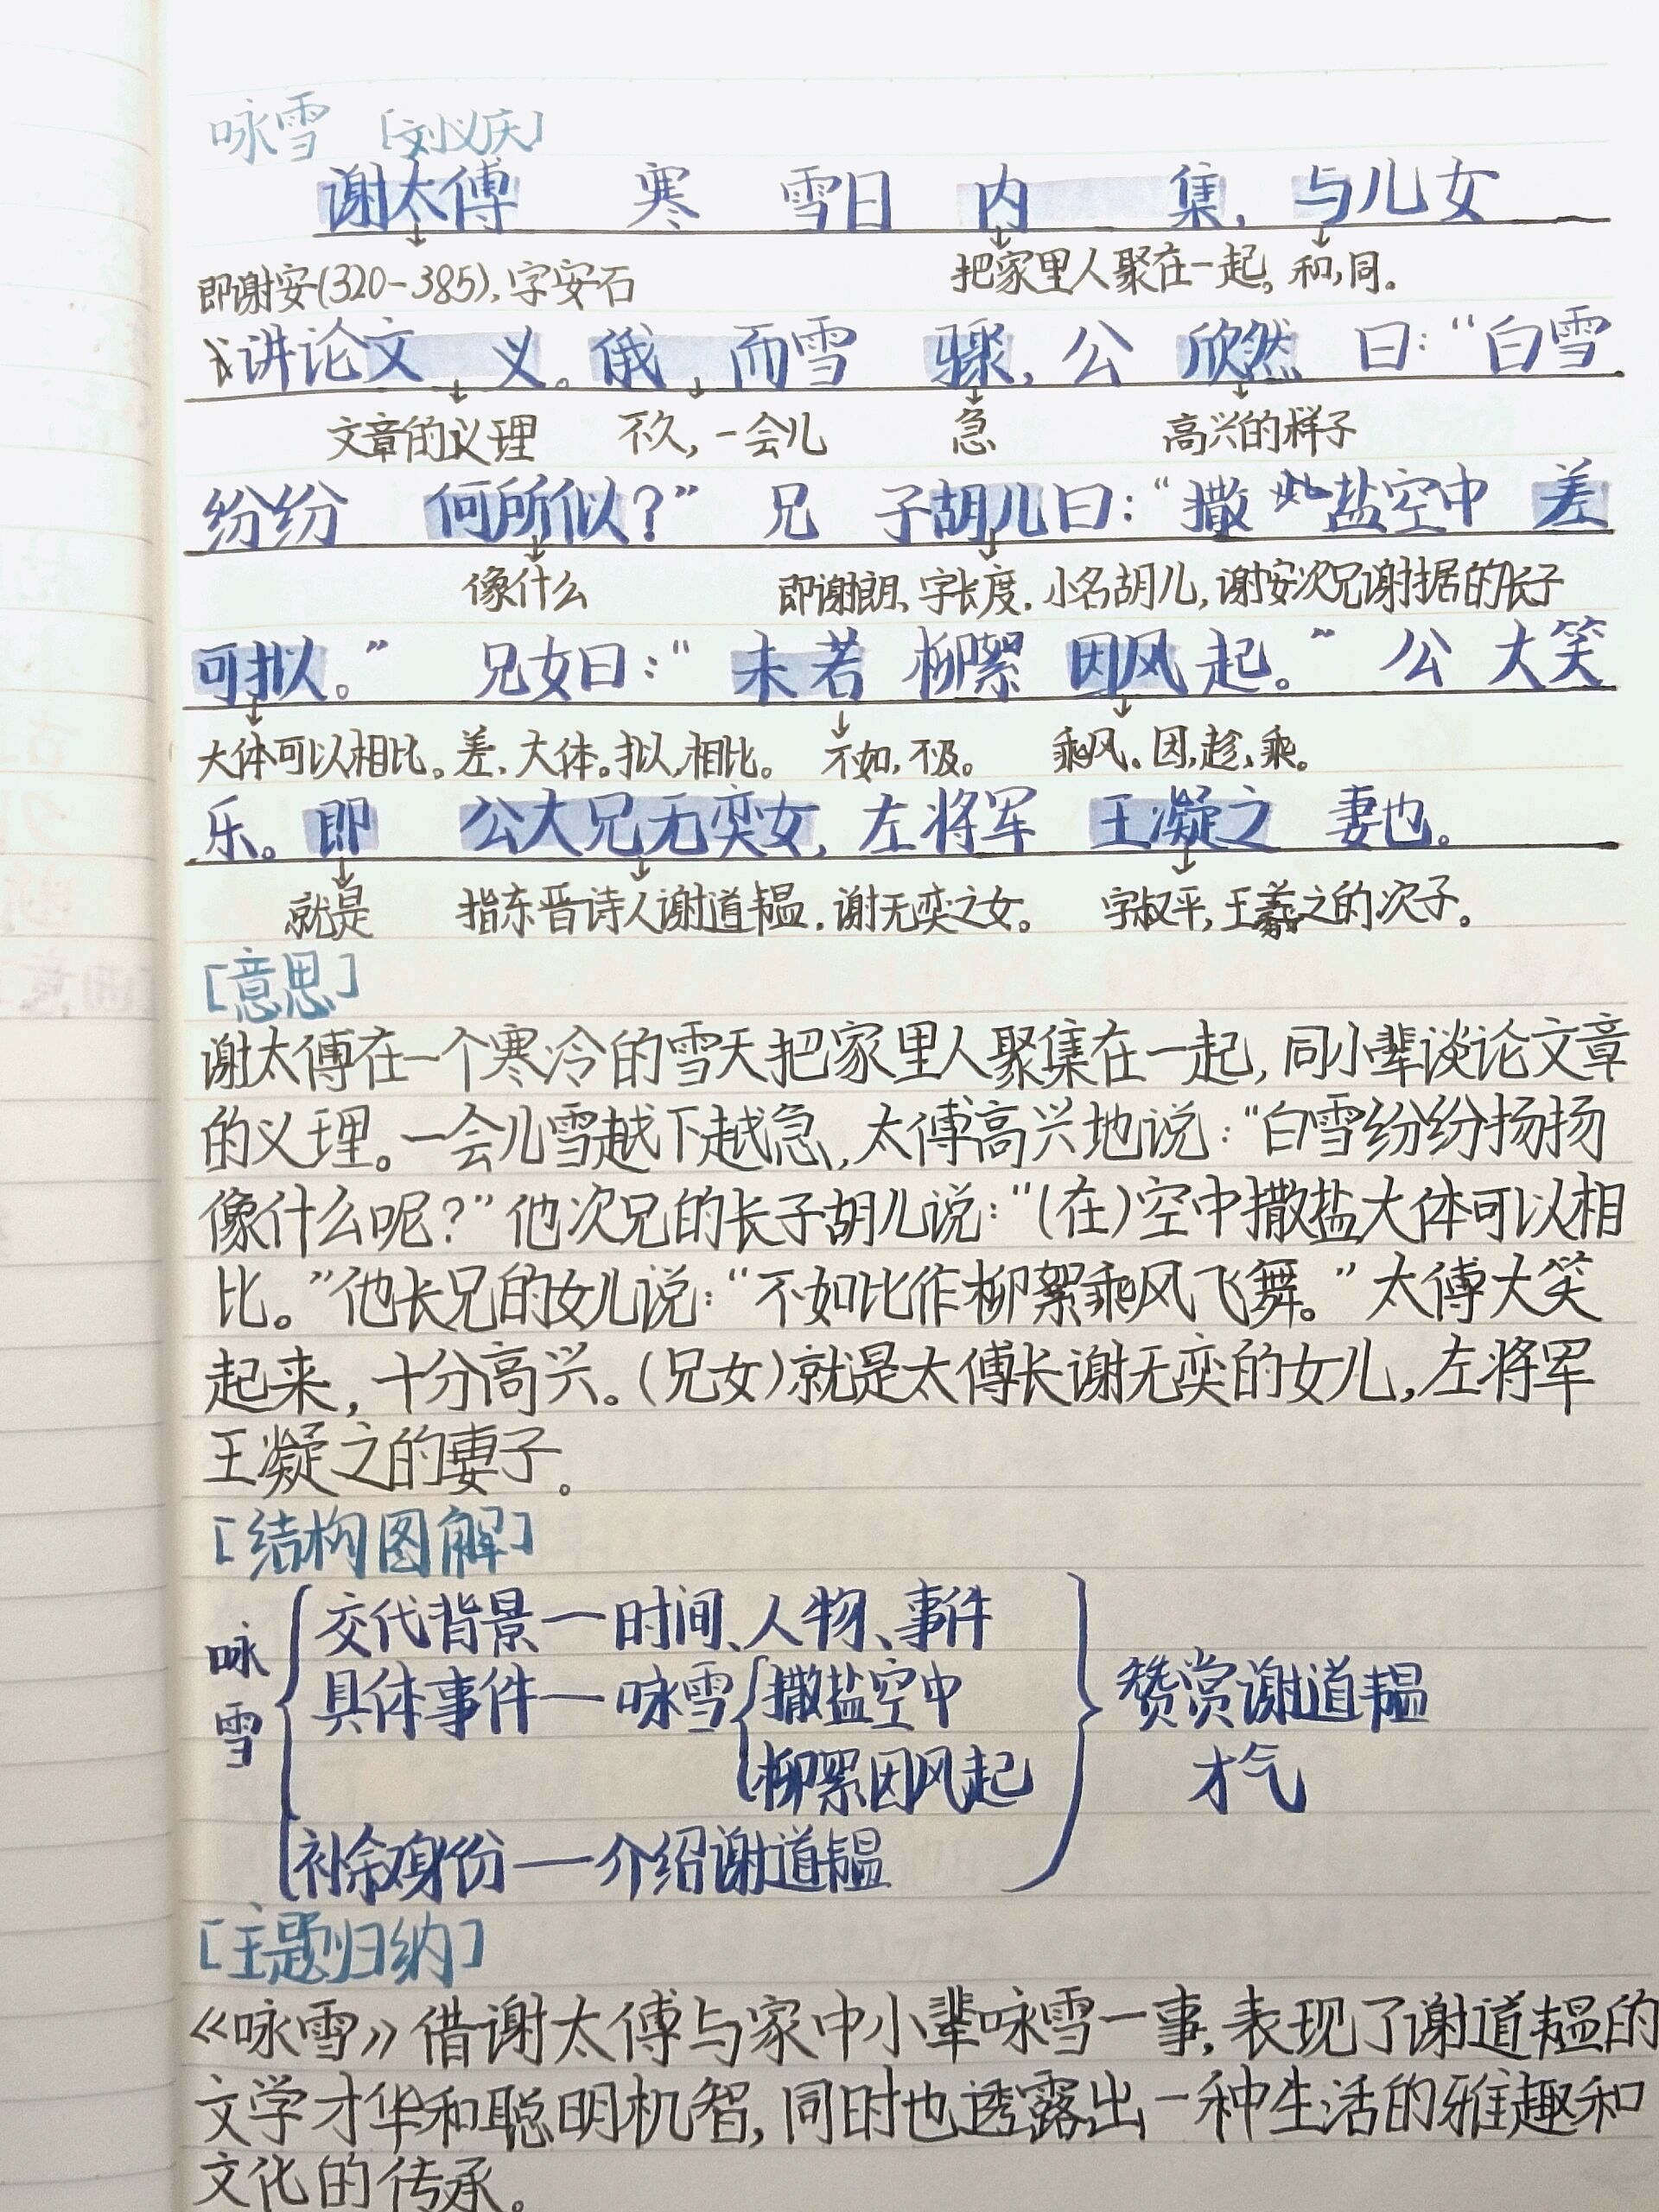 咏雪 [刘义庆]
谢太傅 寒 雪日 内 集, 与儿女
即谢安(320-385), 字安石 把家里人聚在一起。 和,同。
讲论文 义。俄 而雪 骤, 公 欣然 曰: “白雪
文章的义理 不久, 一会儿 急 高兴的样子
纷纷 何所似?” 兄 子胡儿曰: “撒 盐空中 差
像什么 即谢朗、字长度. 小名胡儿, 谢安次兄谢据的长子
可拟。” 兄女曰: “未若 柳絮 因风 起。” 公 大笑
大体可以相比。差, 大体。拟, 相比。 不如, 不及。 乘风。因, 趁、乘。
乐。即 公大兄无奕女, 左将军 王凝之 妻也。
就是 指东晋诗人谢道韫, 谢无奕之女。 字叔平, 王羲之的次子。
[意思]
谢太傅在一个寒冷的雪天把家里人聚集在一起, 同小辈谈论文章
的义理。一会儿雪越下越急, 太傅高兴地说: “白雪纷纷扬扬
像什么呢?”他次兄的长子胡儿说: “(在)空中撒盐大体可以相
比。”他长兄的女儿说: “不如比作柳絮乘风飞舞。”太傅大笑
起来, 十分高兴。(兄女)就是太傅长谢无奕的女儿, 左将军
王凝之的妻子。
[结构图解]
咏雪
交代背景—时间、人物、事件
具体事件—咏雪 撒盐空中
柳絮因风起
赞赏谢道韫
才气
身份—介绍谢道韫
[主题归纳]
《咏雪》借谢太傅与家中小辈咏雪一事, 表现了谢道韫的
文学才华和聪明机智, 同时也透露出一种生活的雅趣和
文化的传承。